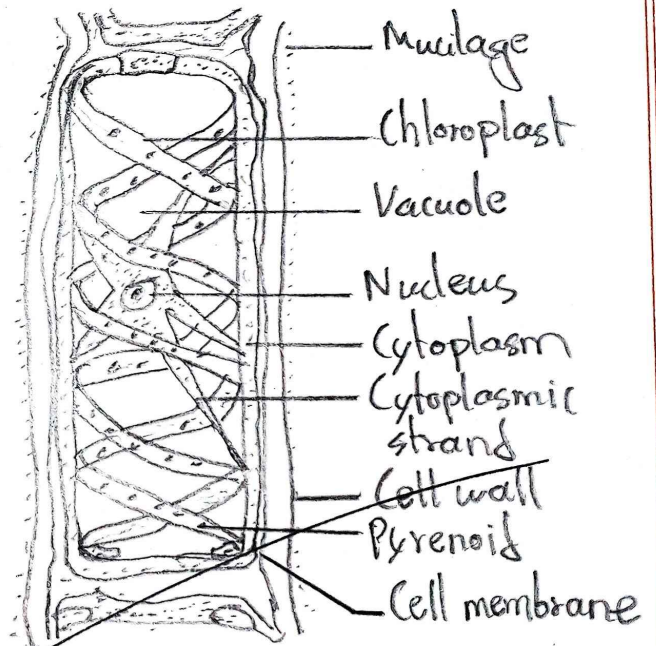 Mucilage
Chloroplast
Vacuole
Nucleus
Cytoplasm
Cytoplasmic
strand
Cell wall
Pyrenoid
Cell membrane